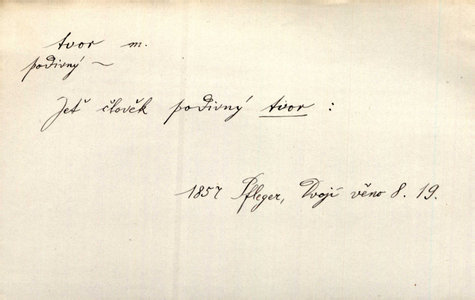 tvor m.
podivný ~
Jetˇ člověk podivný tvor :
1857 Pfleger, Dvojí věno 8. 19.